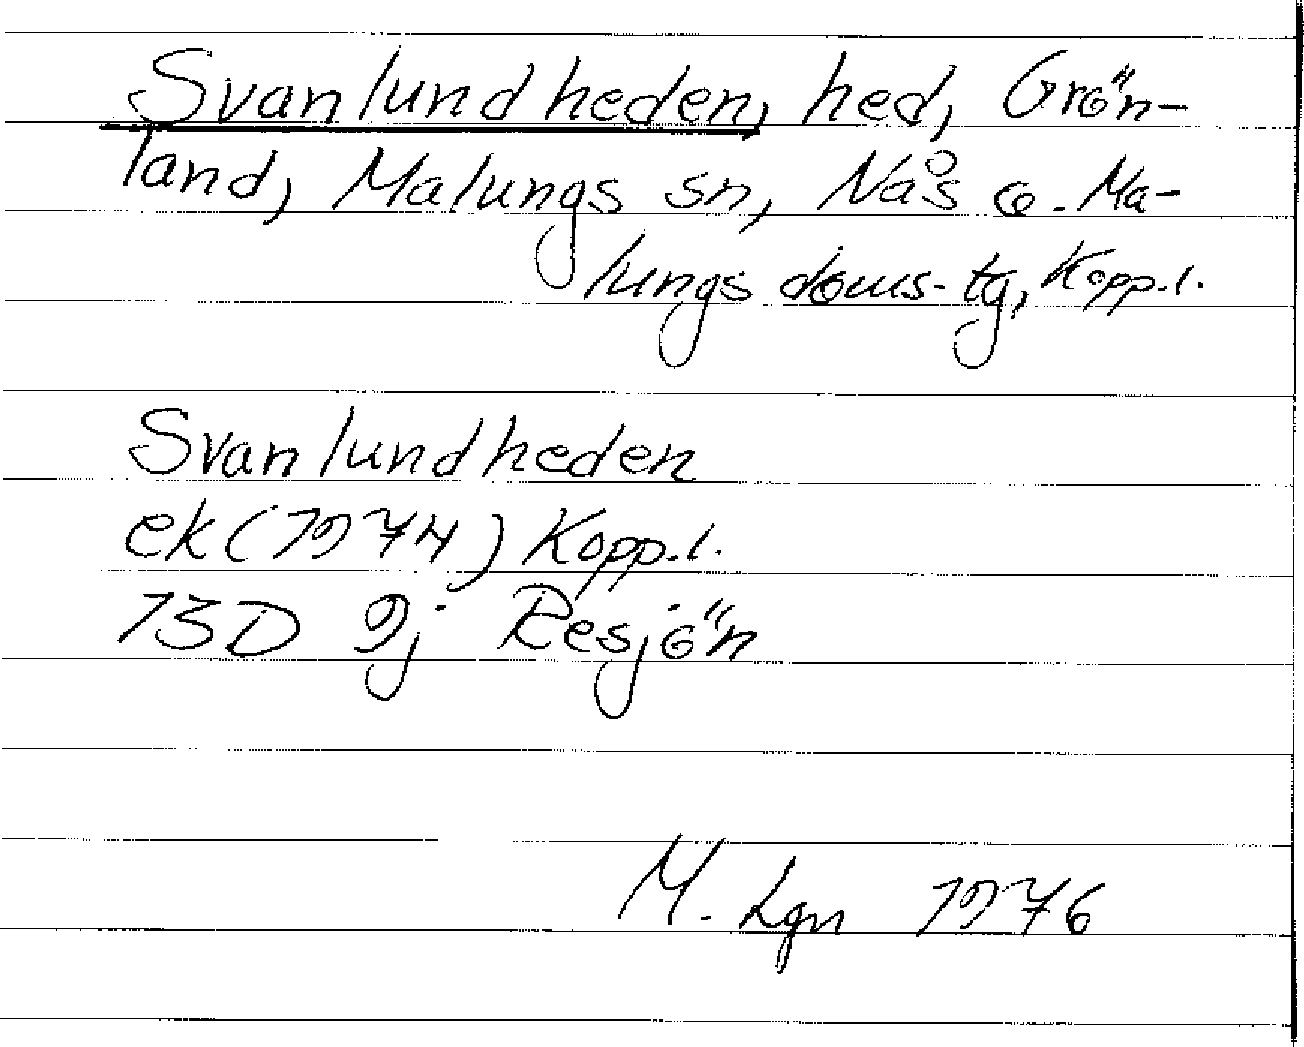 Svanlundheden, hed, Grön-
land, Malungs sn, Nås o. Ma-
lungs doms. tg, Kopp.l.
Svanlundheden
ek (1974) Kopp.l.
13D 9j Resjön
M. Lgn 1976